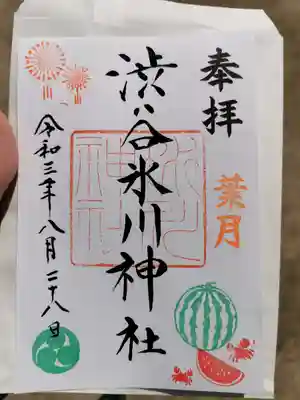 奉拝
葉月
渋谷氷川神社
令和三年八月二十八日